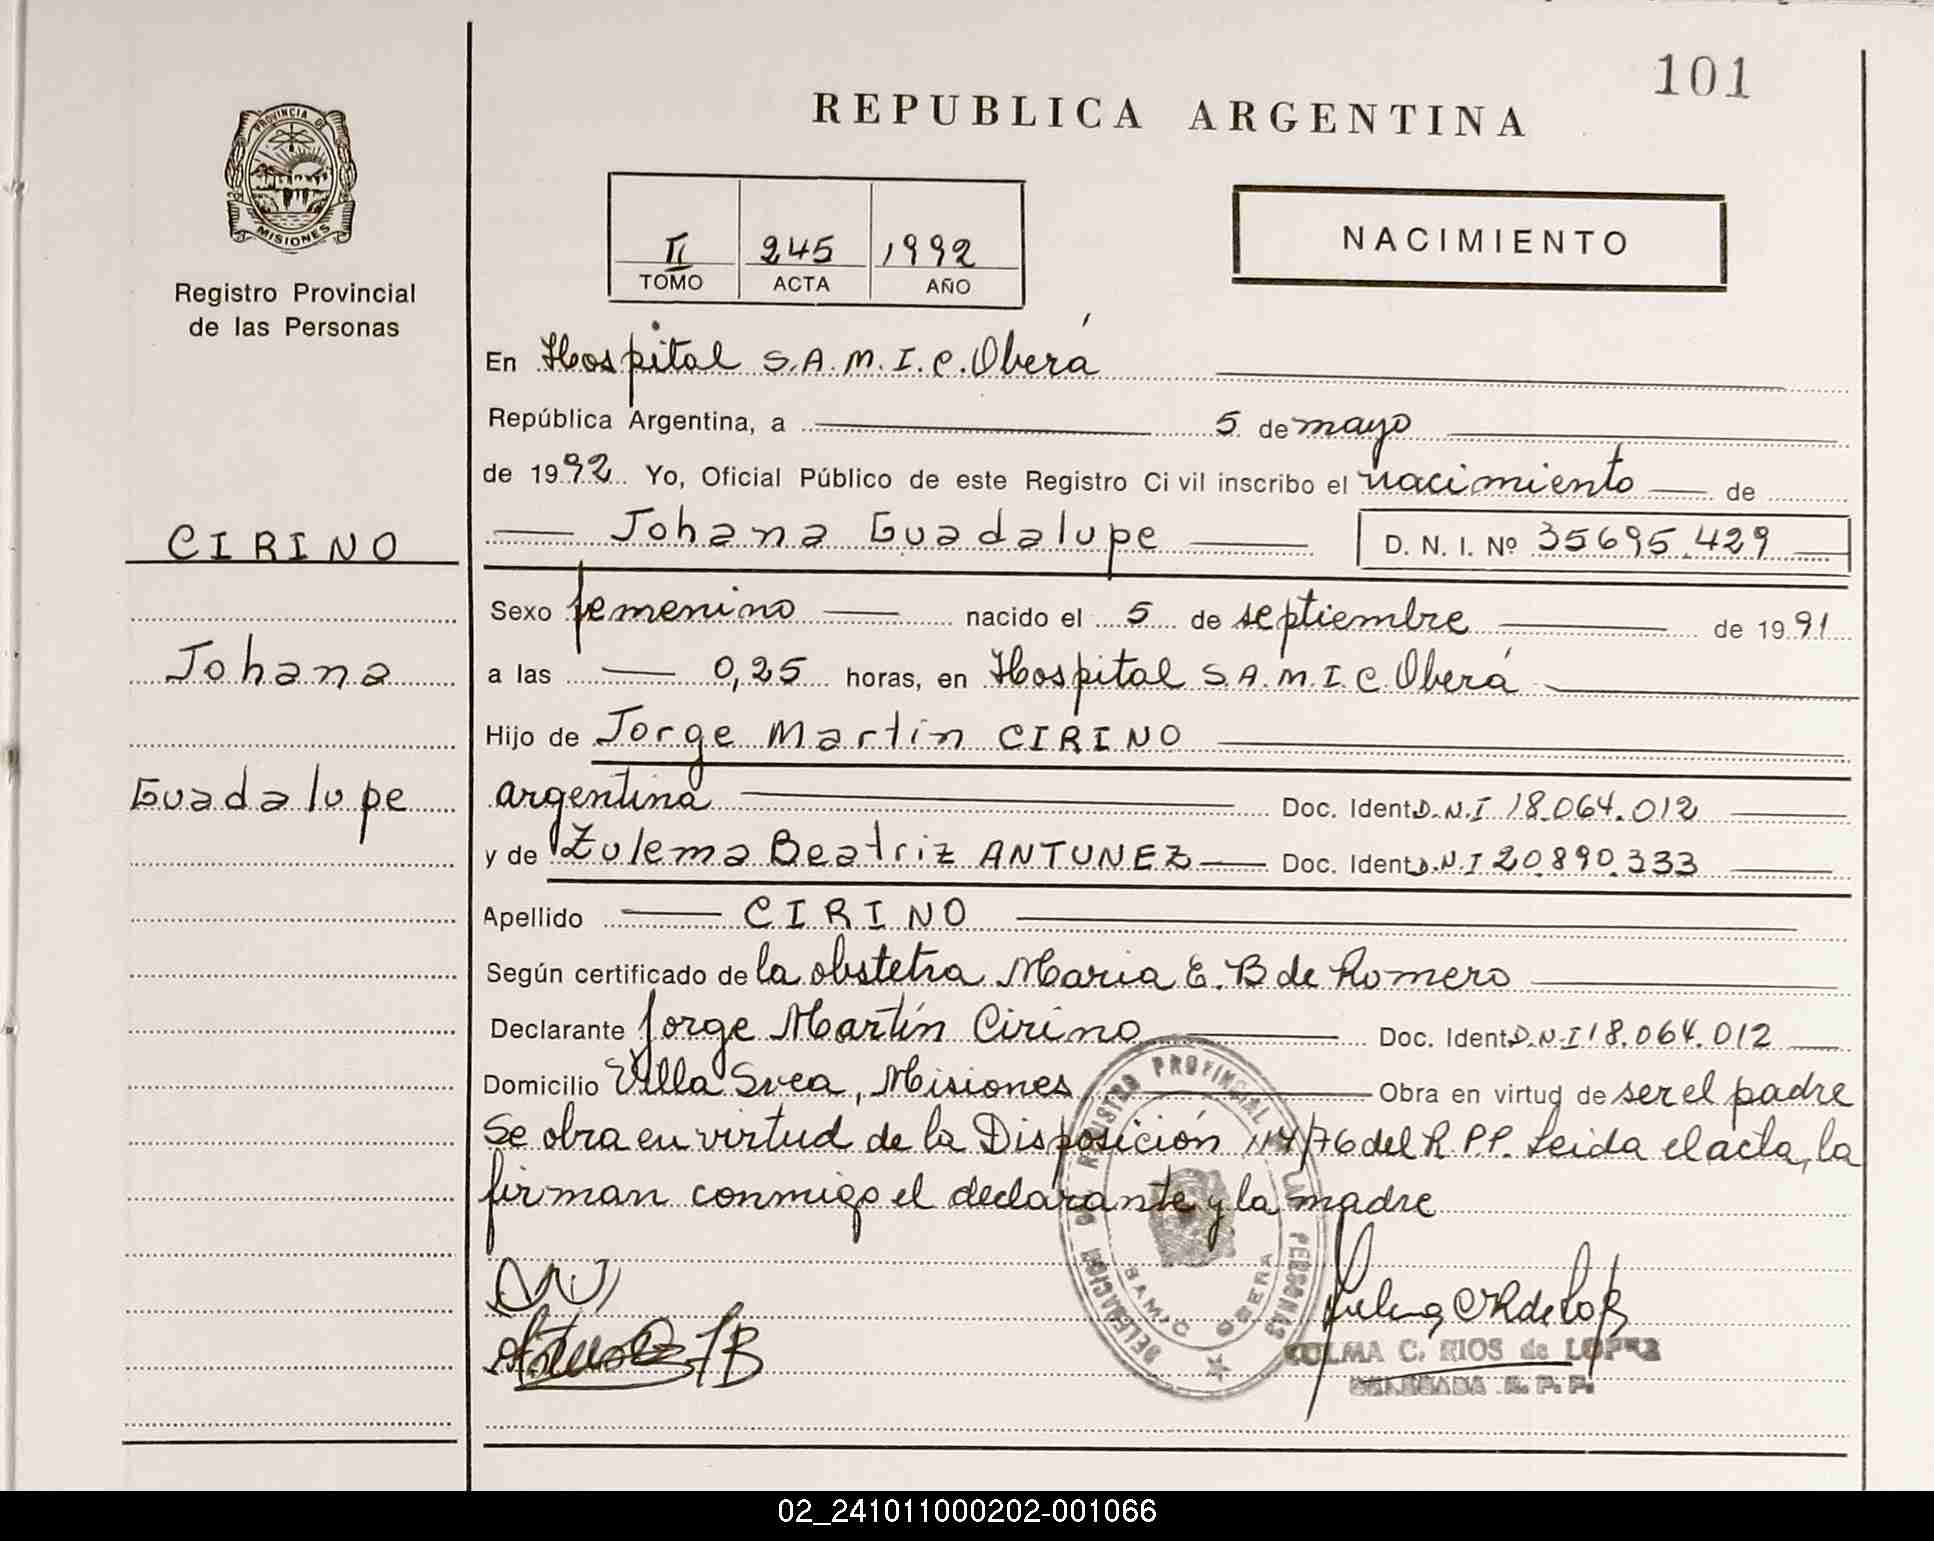 101
REPUBLICA ARGENTINA
PROVINCIA DE
MISIONES
Registro Provincial
de las Personas
II 245 1992
TOMO ACTA AÑO
NACIMIENTO
En Hospital S.A.M.I.C. Oberá
República Argentina, a 5 de mayo
de 1992 Yo, Oficial Público de este Registro Civil inscribo el nacimiento de
Johana Guadalupe D. N. I. Nº 35695.429
CIRINO
Johana
Guadalupe
Sexo femenino nacido el 5 de septiembre de 1991
a las 0,25 horas, en Hospital S.A.M.I.C. Oberá
Hijo de Jorge Martín CIRINO
argentina Doc. Ident. D.N.I 18.064.012
y de Zulema Beatriz ANTUNEZ Doc. Ident. D.N.I 20.890.333
Apellido CIRINO
Según certificado de la obstetra Maria E. B de Romero
Declarante Jorge Martín Cirino Doc. Ident. D.N.I 18.064.012
Domicilio Villa Svea, Misiones Obra en virtud de ser el padre
Se obra en virtud de la Disposición 114/76 del R.P.P. Leida el acta, la
firman conmigo el declarante y la madre
DELEGACION DEL REGISTRO PROVINCIAL DE LAS PERSONAS
SAMIC OBERA
ZULMA C. RIOS de LOPEZ
DELEGADA R. P. P.
02_241011000202-001066